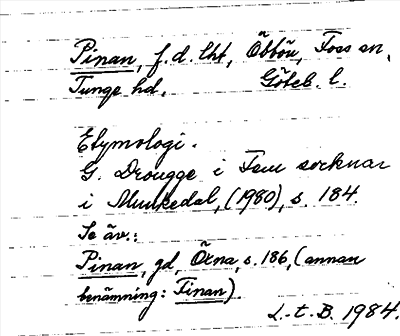 Pinan, f.d. lht, Öbbön, Foss sn,
Tunge hd, Göteb. l.
Etymologi.
G. Drougge i Fem socknar
i Munkedal, (1980), s. 184.
Se äv.:
Pinan, gd, Örna, s. 186, (annan
benämning: Tinan).
L-t. B. 1984.